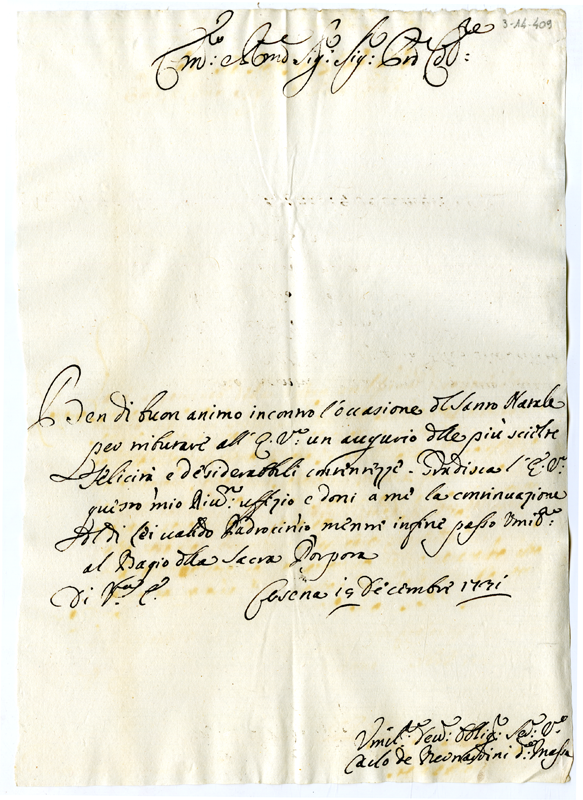 3-14-409
Em:mo e Rmo Sig:re Sig:re Prone Col:mo
Ben di buon animo incontro l'occasione del Santo Natale
per tributare all'E. Va. un augurio delle più scielte
felicità e desiderabili contentezze. Gradisca l'E. Va.
questo mio Riv.te uffizio e doni a me la continuazione
del di Lei valido Padrocinio mentre infine passo Umilte.
al Bagio della Sacra Porpora
Di Vra E.
Cesena 19 Decembre 1731
Umilo. Devo. Obligo. Sere. Vo.
Carlo de